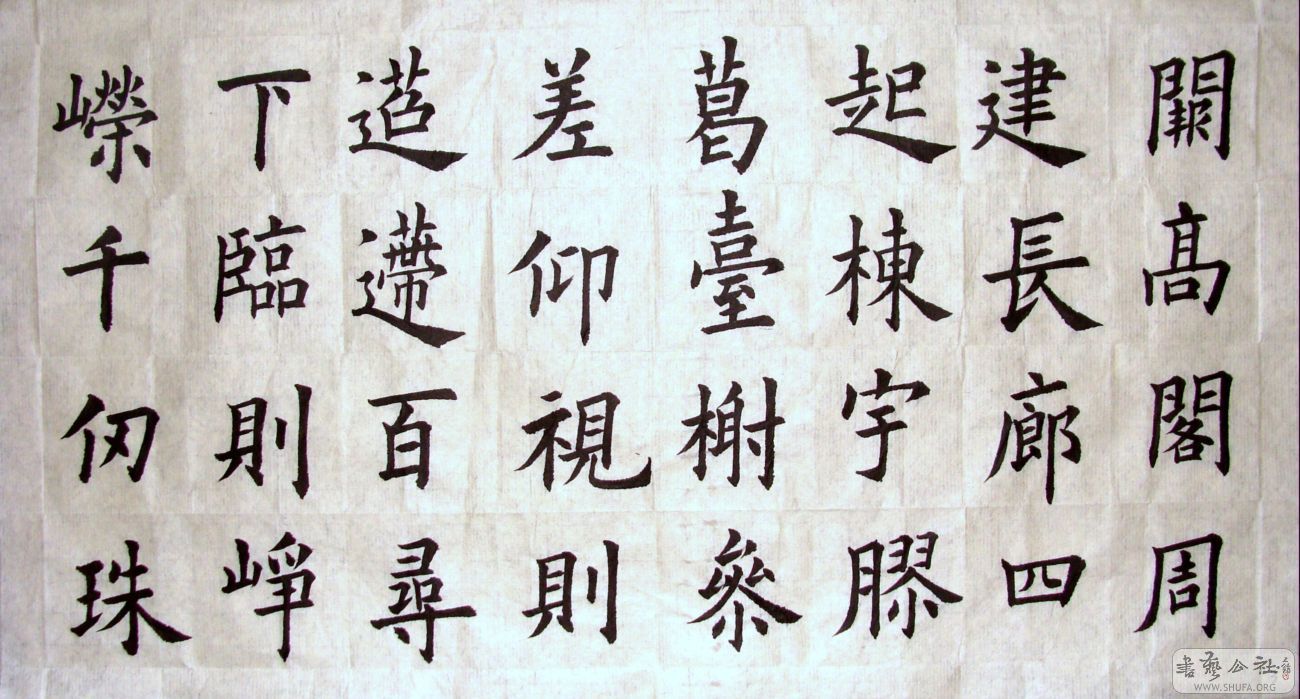 闕髙閣周
建長廊四
起棟宇膠
葛臺榭叅
差仰視則
迢遰百尋
下臨則崢
嶸千仞珠
書藝公社
WWW.SHUFA.ORG